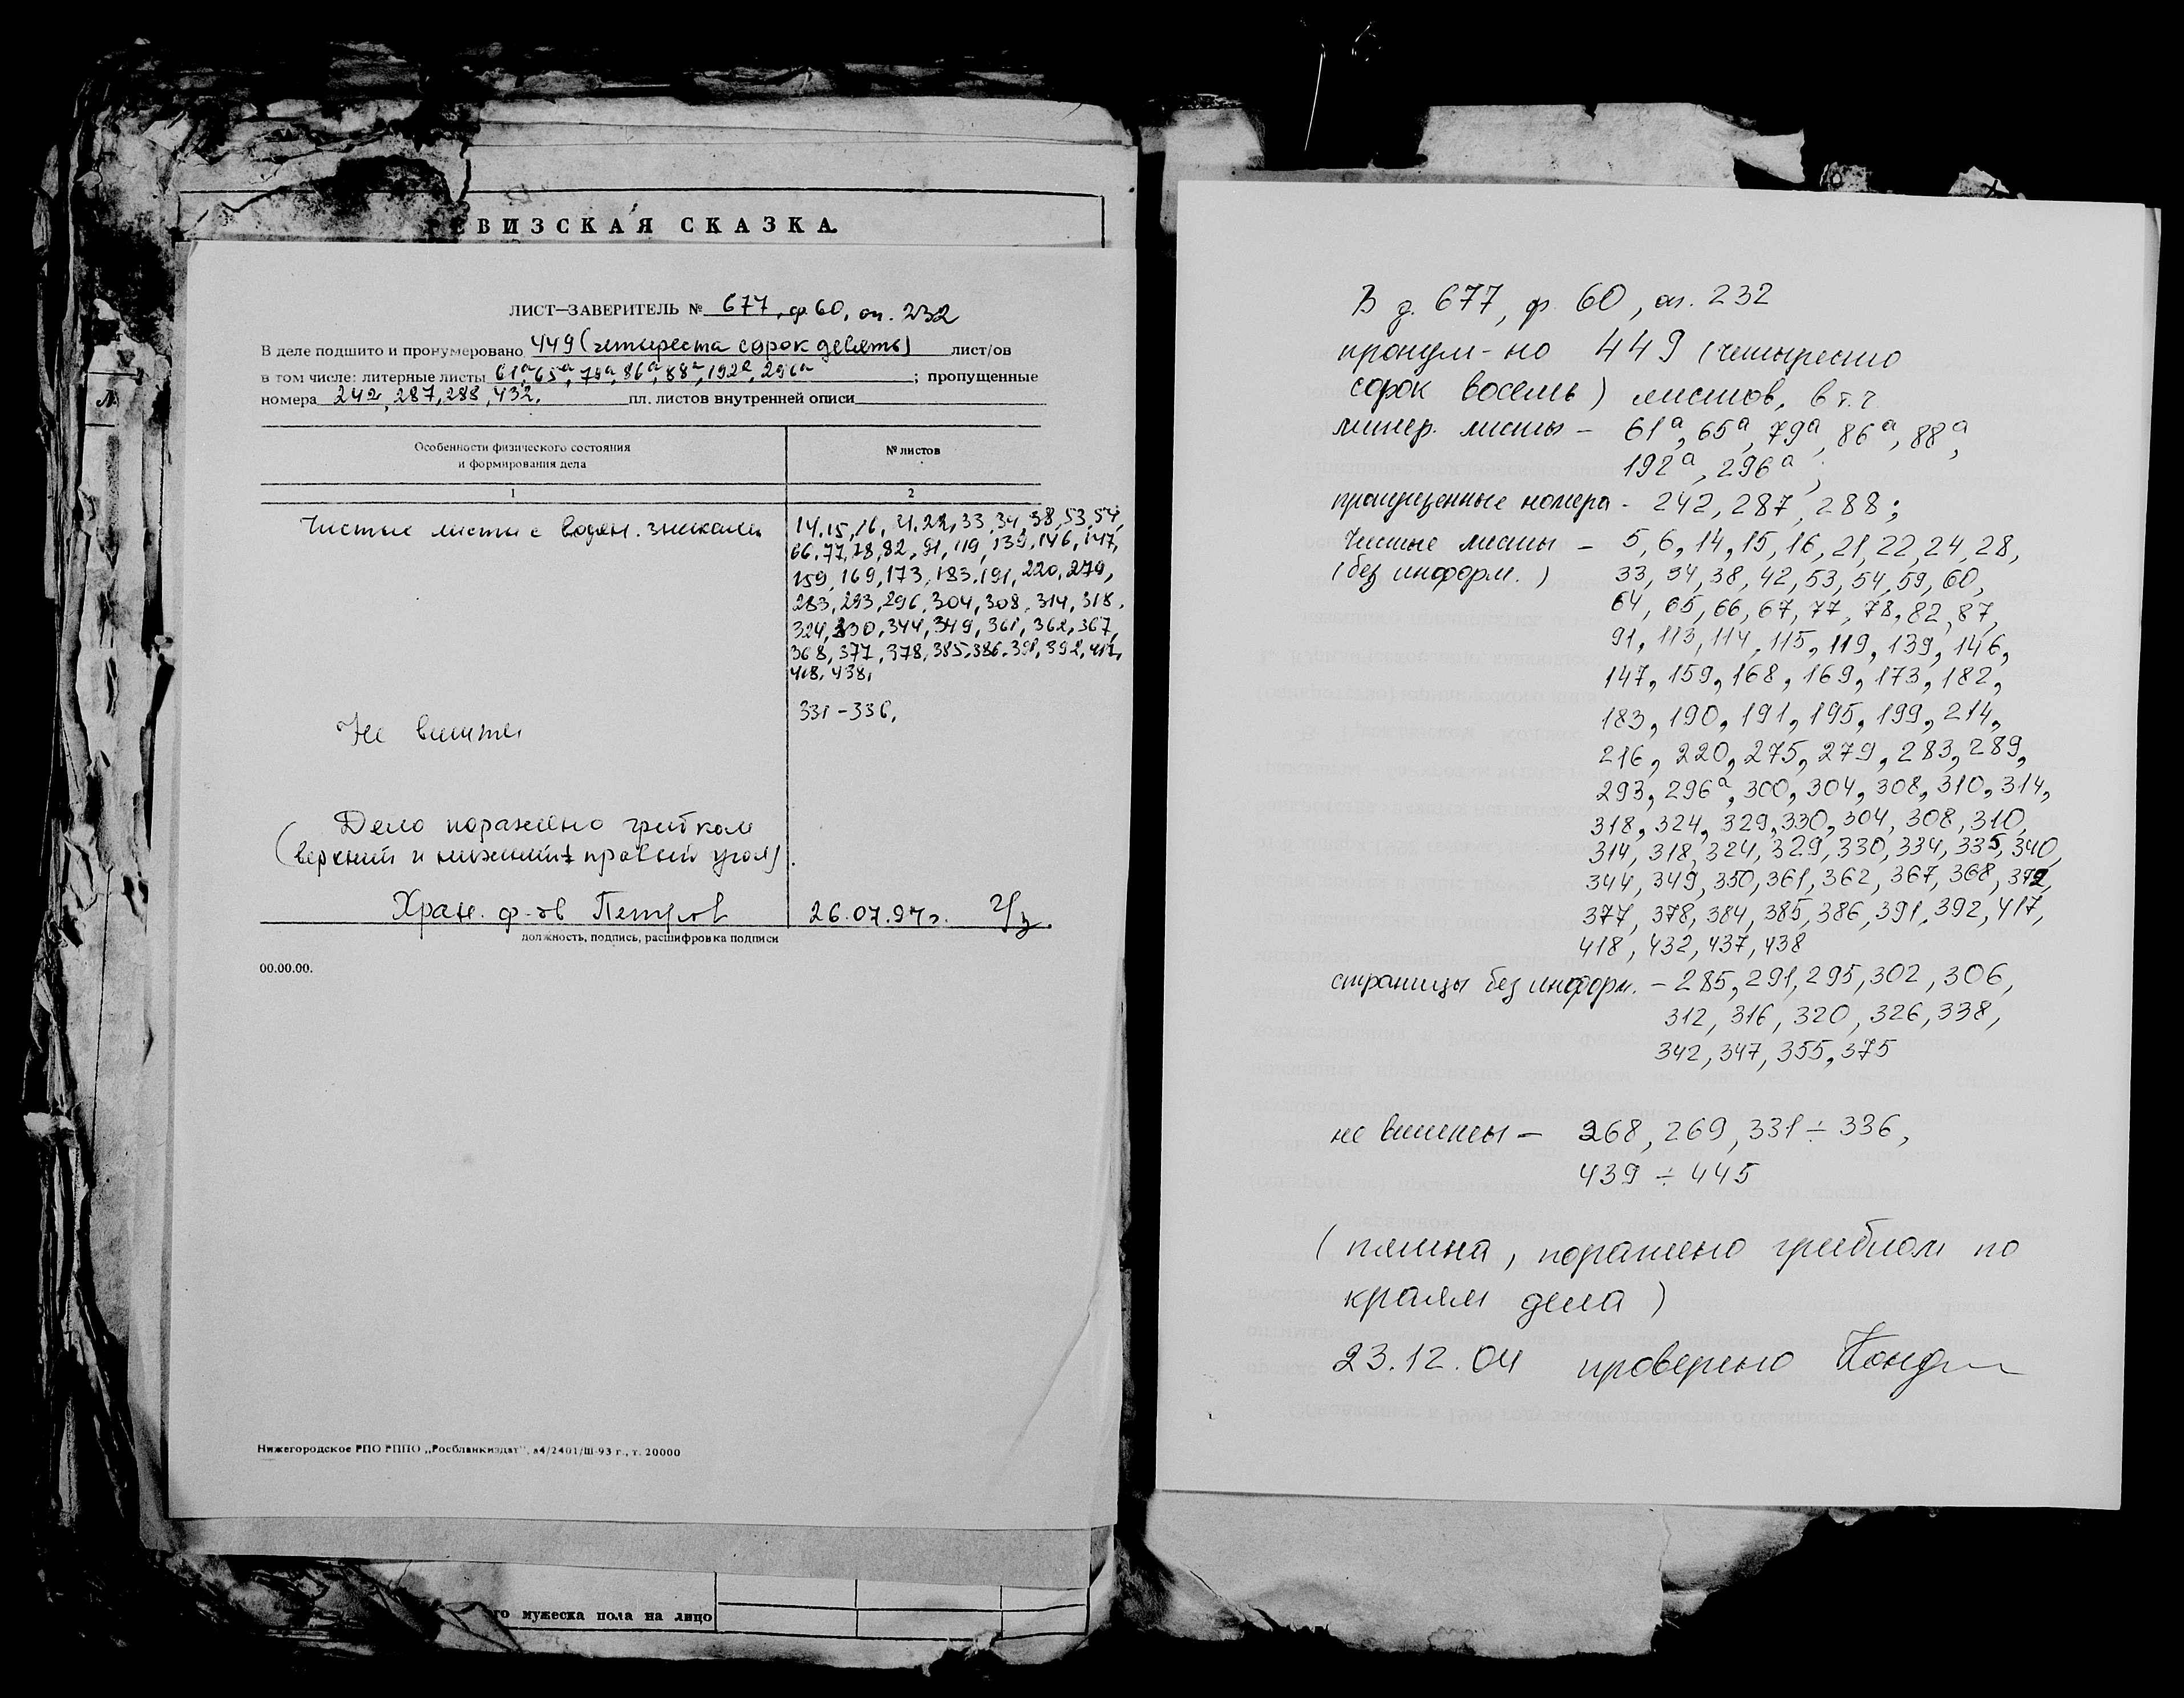 ЕВИЗСКАЯ СКАЗКА.
ЛИСТ—ЗАВЕРИТЕЛЬ № 677, ф. 60, оп. 232
В деле подшито и пронумеровано 449 (четыреста сорок девять) лист/ов
в том числе: литерные листы 61а, 65а, 79а, 86а, 88а, 192а, 296а ; пропущенные
номера 242, 287, 288, 432. пл. листов внутренней описи
Особенности физического состояния
и формирования дела
№ листов
1 2
Чистые листы с водян. знаками
14, 15, 16, 21, 22, 33, 34, 38, 53, 54,
66, 77, 78, 82, 91, 119, 139, 146, 147,
159, 169, 173, 183, 191, 220, 279,
283, 293, 296, 304, 308, 314, 318,
324, 330, 344, 349, 361, 362, 367,
368, 377, 378, 385, 386, 391, 392, 417,
418, 438,
Не вшиты 331-336,
Дело поражено грибком
(верхний и нижний правый угол).
Хран. ф-ов Петров 26.07.97г.
должность, подпись, расшифровка подписи
00.00.00.
Нижегородское РПО РППО „Росбланкиздат", з4/2401/III-93 г., т. 20000
го мужеска пола на лицо
В д. 677, ф. 60, оп. 232
пронум-но 449 (четыреста
сорок восемь) листов, в т.ч.
литер. листы – 61а, 65а, 79а, 86а, 88а,
192а, 296а;
пропущенные номера - 242, 287, 288;
Чистые листы – 5, 6, 14, 15, 16, 21, 22, 24, 28,
(без информ.) 33, 34, 38, 42, 53, 54, 59, 60,
64, 65, 66, 67, 77, 78, 82, 87,
91, 113, 114, 115, 119, 139, 146,
147, 159, 168, 169, 173, 182,
183, 190, 191, 195, 199, 214,
216, 220, 275, 279, 283, 289,
293, 296а, 300, 304, 308, 310, 314,
318, 324, 329, 330, 304, 308, 310,
314, 318, 324, 329, 330, 334, 335, 340,
344, 349, 350, 361, 362, 367, 368, 372,
377, 378, 384, 385, 386, 391, 392, 417,
418, 432, 437, 438
страницы без информ. – 285, 291, 295, 302, 306,
312, 316, 320, 326, 338,
342, 347, 355, 375
не вшиты – 268, 269, 331÷336,
439÷445
(пятна, поражено грибком по
краям дела)
23.12.04 проверено